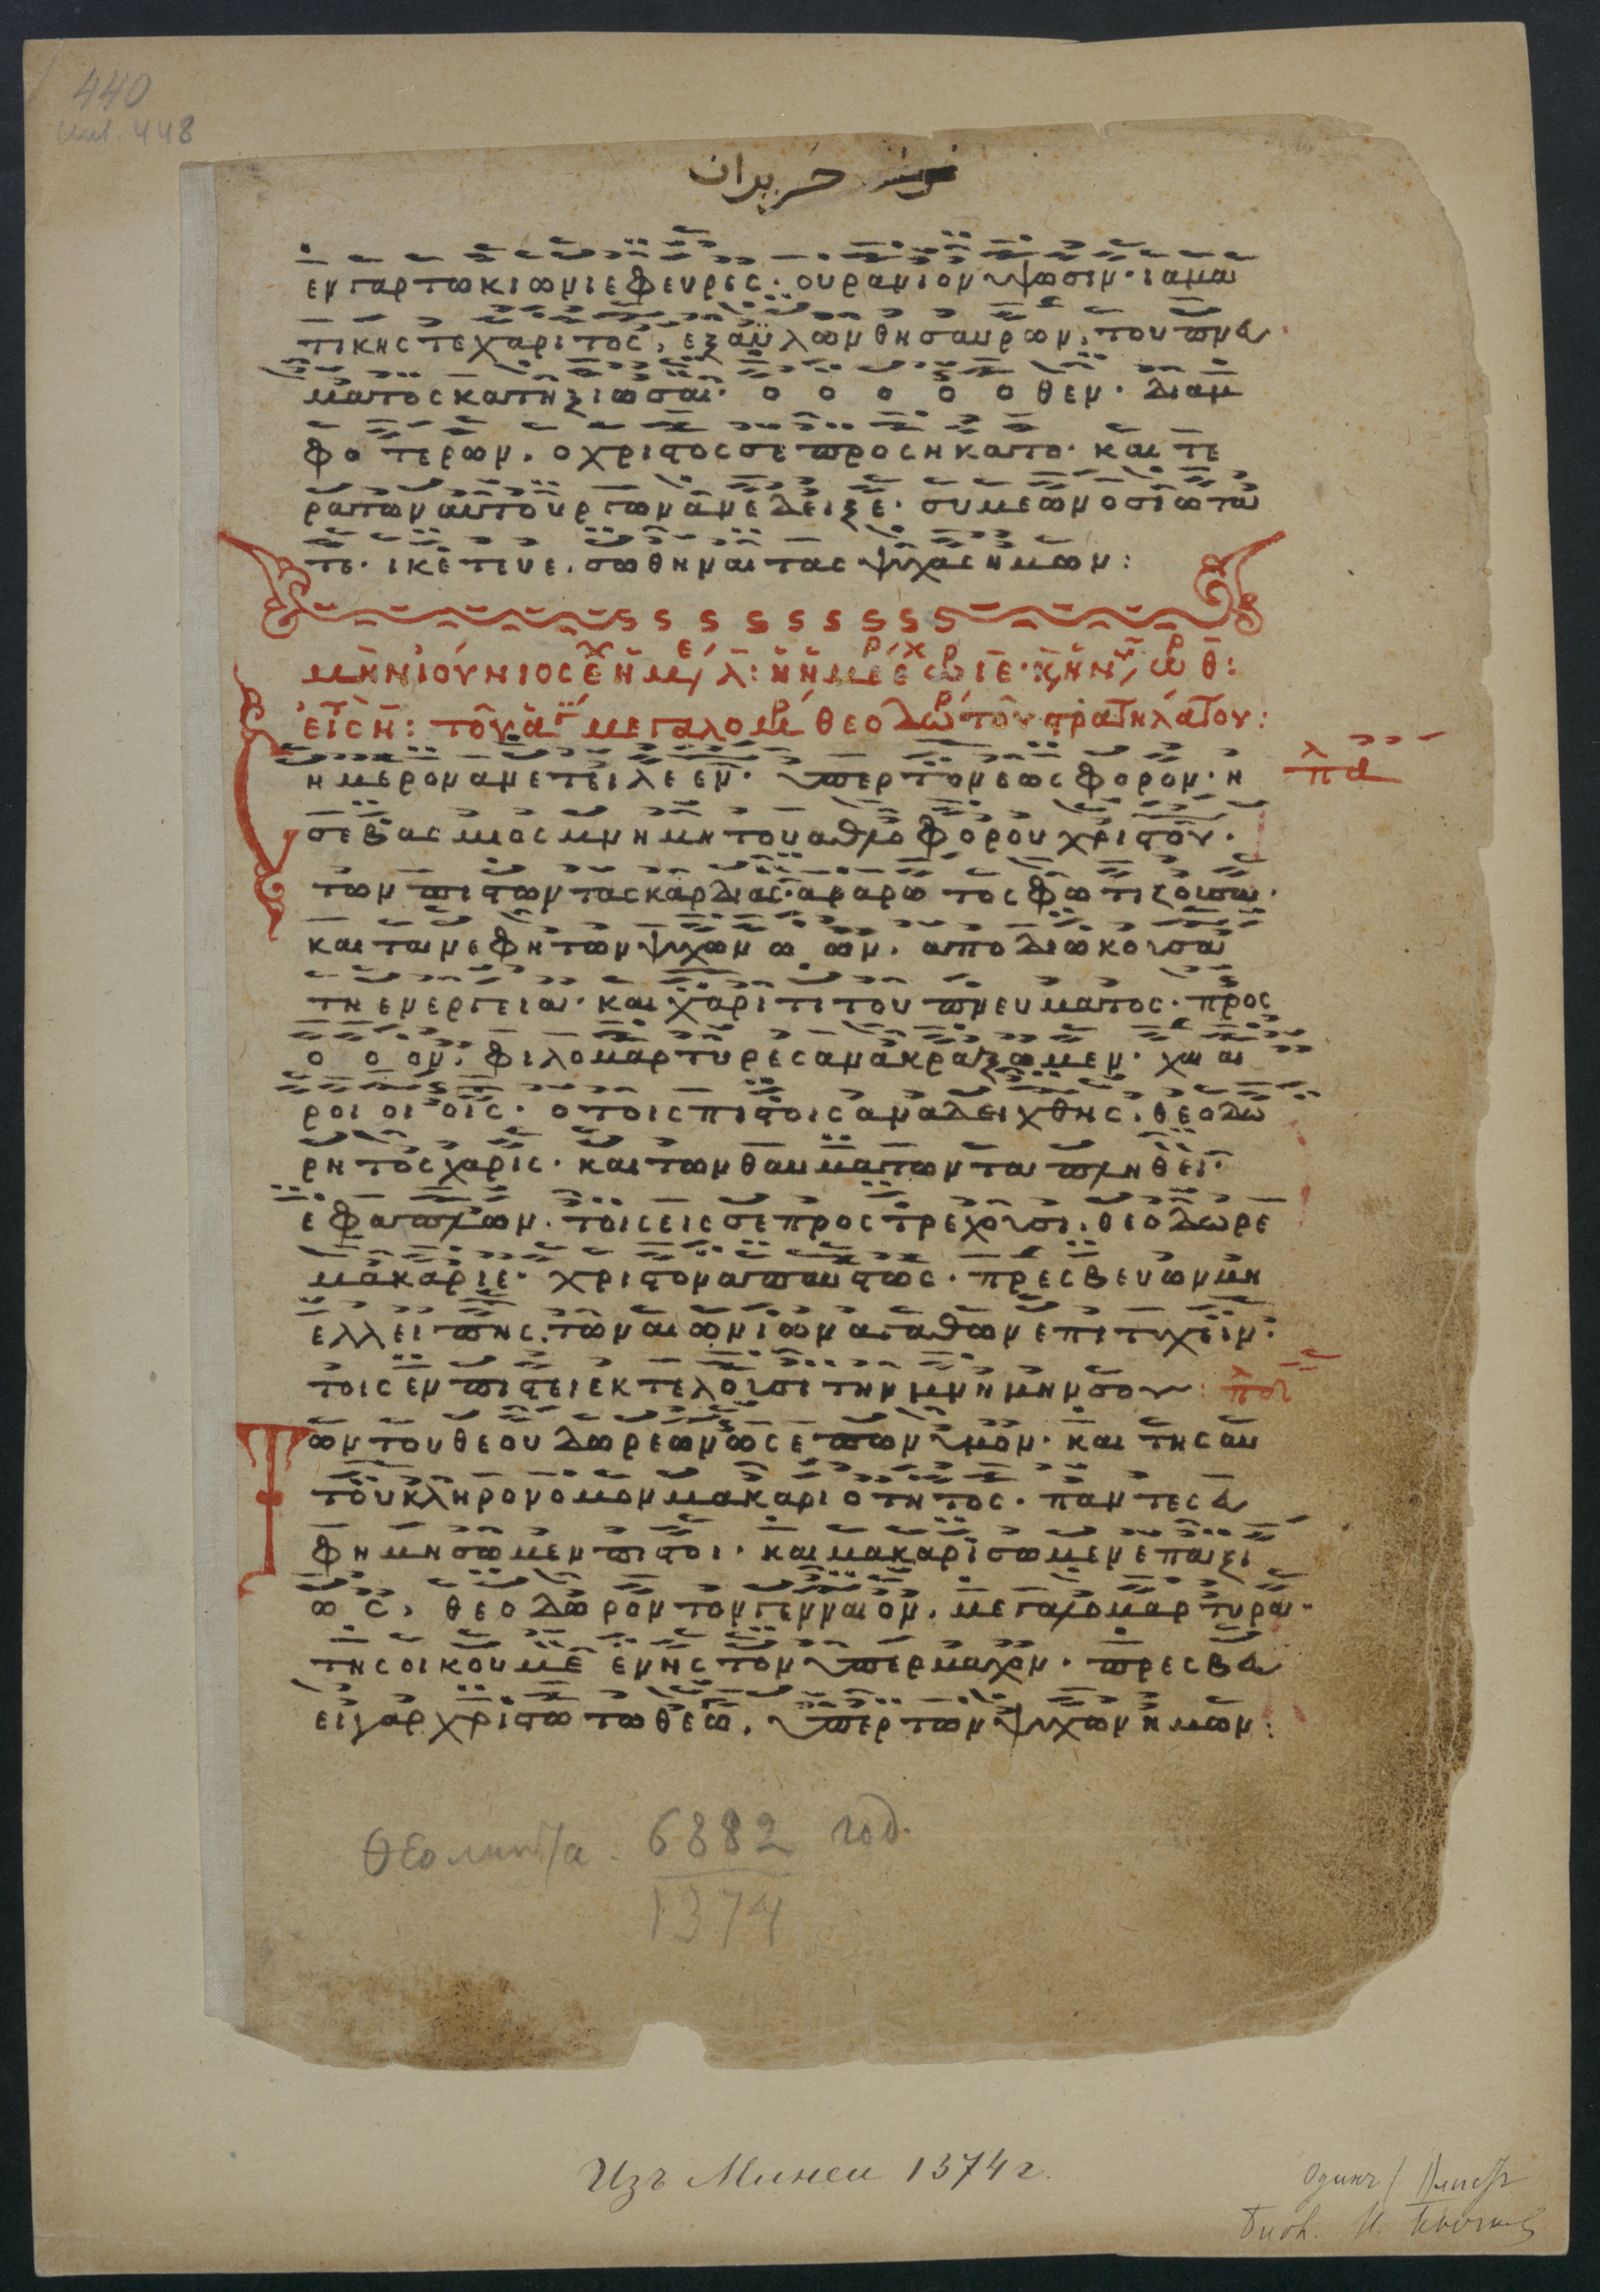 440
حزيران
εν γαρ τω κιωνι εφευρες · ουρανιον υψωσιν · ιαμα
τικης τε χαριτος, εξ αϋλων θησαυρων, του πνευ
ματος κατηξιωσαι · ο ο ο ο ο θεν · δι αμ
φο τερων, ο χριστος σε προσηκατο · και τε
ρατων αυτουργον ανεδειξε · συμεων οσιωτα
τε · ικετευε, σωθηναι τας ψυχας ημων :
εις η : του α μεγαλομρ θεοδωρ του στρατηλατου :
ημερον ανετειλεεν · υπερ τον εωσφορον · η
σεβασμιος μνημη του αθλοφορου χριστου ·
των πιστων τας καρδιας · αραρω τος φωτιζουσα ·
και τα νεφη των ψυχων ω ων, αποδιωκουσα
τη ενεργεια · και χαριτι του πνευματος · προς
ο ο ον, φιλομαρτυρες ανακραξωμεν · χαι αι
ροι οι οις · ο τοις πιστοις αναδειχθης, θεοδω
ρητος χαρις · και των θαυματων τα πληθει ·
εφαπλων · τοις εις σε προστρεχουσι, θεοδωρε
μακαριε · χριστον απαυστως · πρεσβευων μη
ελλειπης, των αιωνιων αγαθων επιτυχειν ·
τοις εν πιστει εκτελουσι την μνημην σου :
Των του θεου δωρεων ως επωνυμον · και της αυ
του κληρονομον μακαριοτητος · παντες ευ
φημησωμεν πιστοι · και μακαρισωμεν επαξι
ω ς, θεοδωρον τον γενναιον, μεγαλομαρτυρα ·
της οικουμε ενης τον υπερμαχον · πρεσβευ
ει γαρ χριστω τω θεω, υπερ των ψυχων ημων :
6882 год.
1374
Изъ Минеи 1374 г.